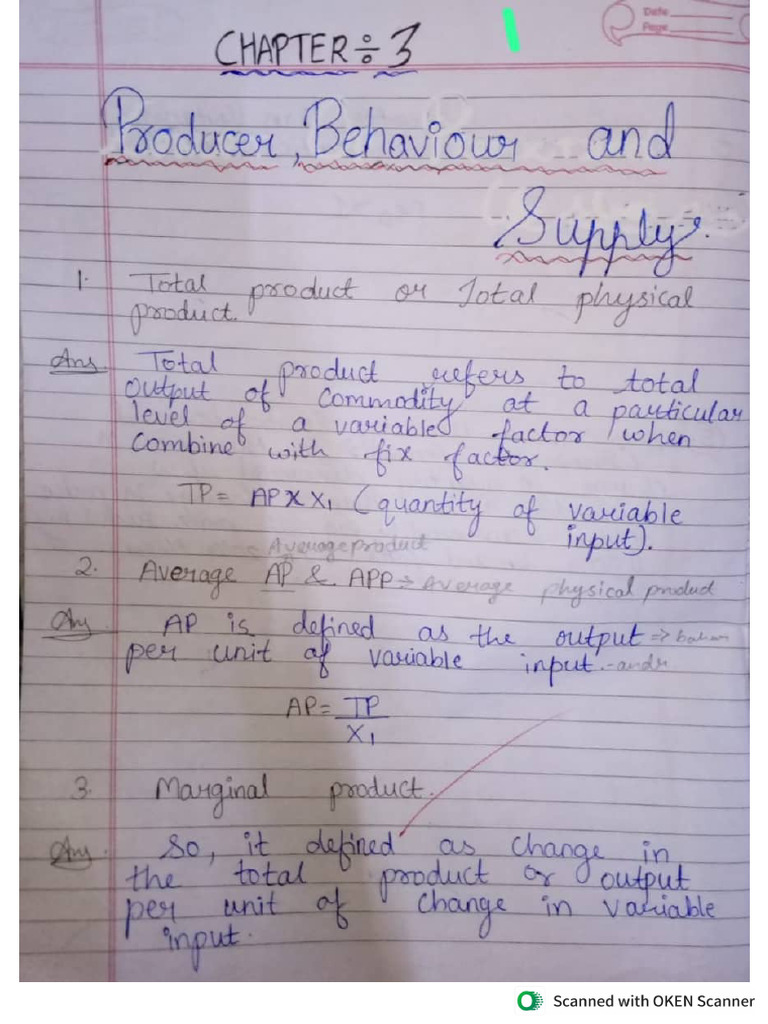 Date
Page
CHAPTER÷3
Producer, Behaviour and
Supply.
1. Total product or Total physical
product.
Ans Total product refers to total
output of commodity at a particular
level of a variable factor when
combine with fix factor.
TP = AP X X1 (quantity of variable
input).
Average product
2. Average AP & APP → Average physical product
Ans AP is defined as the output ⇒ bahar
per unit of variable input.
AP = TP
X1
3. Marginal product.
Ans. So, it defined as change in
the total product or output
per unit of change in variable
input.
Scanned with OKEN Scanner